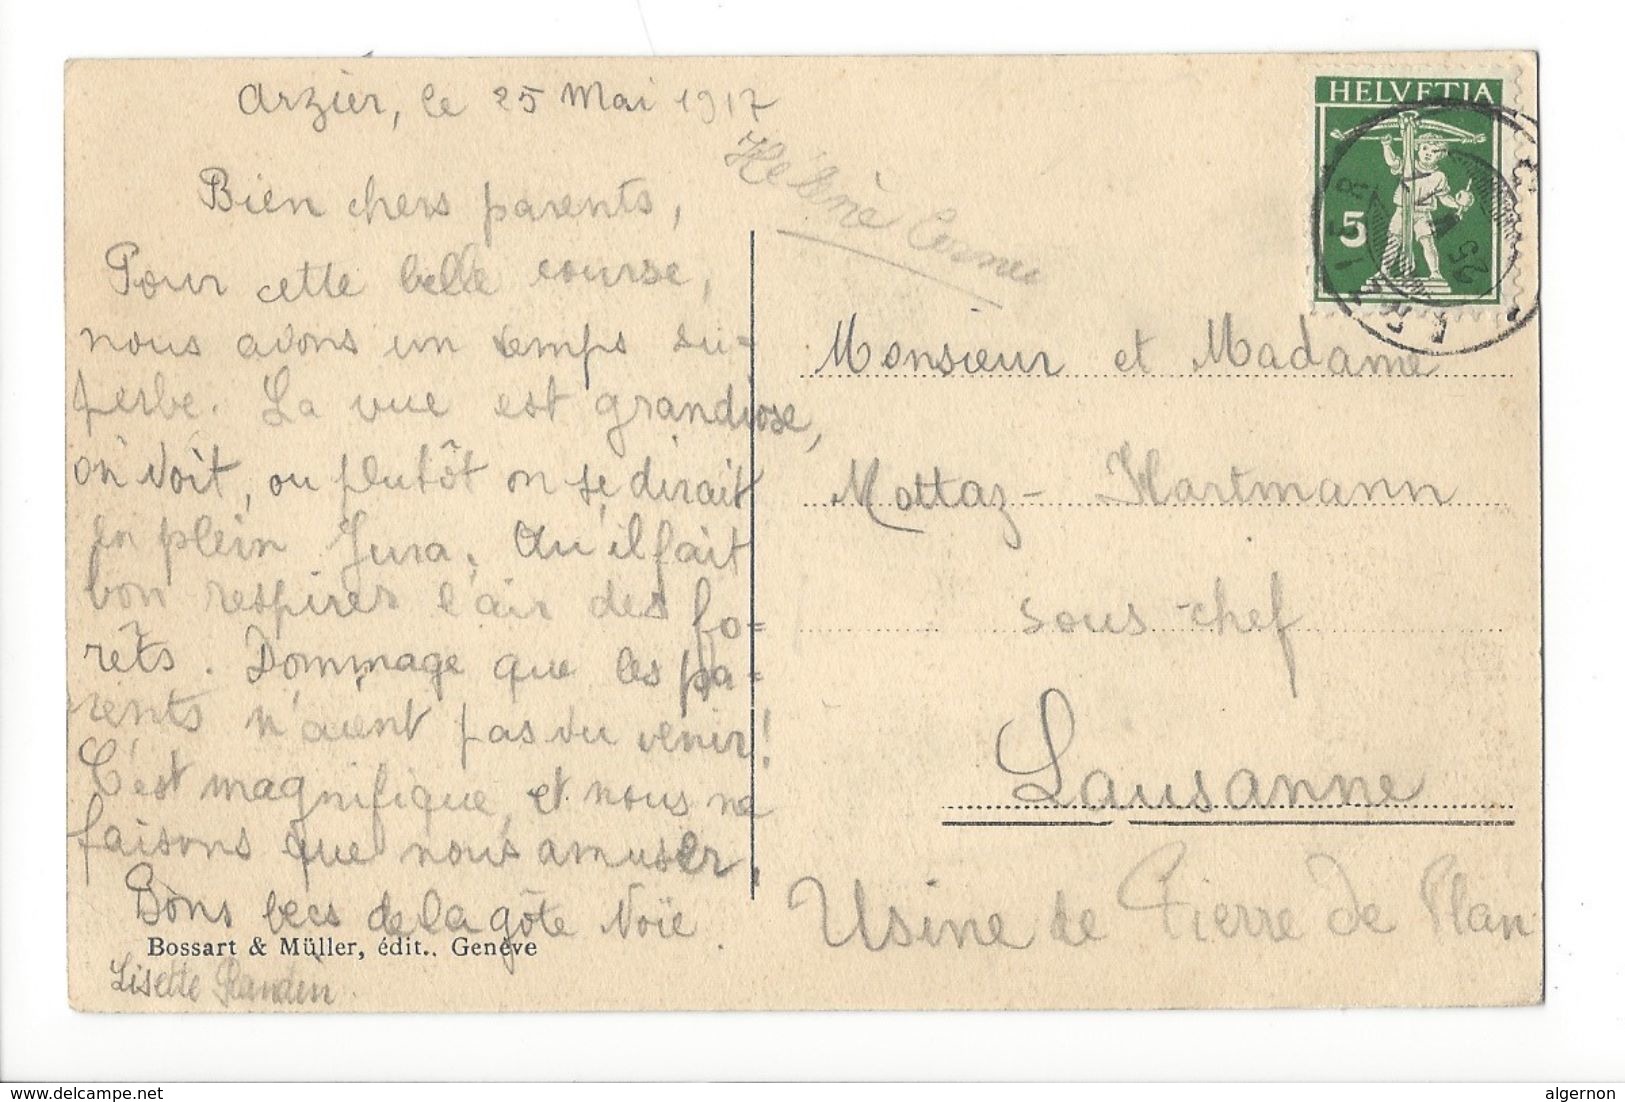 Arzier, le 25 Mai 1917
Bien chers parents,
Pour cette belle course,
nous avons un temps su-
perbe. La vue est grandiose,
on voit, ou plutôt on se dirait
en plein Jura. Qu'il fait
bon respirer l'air des fo-
rêts. Dommage que les pa-
rents n'aient pas du venir!
C'est magnifique, et nous ne
faisons que nous amuser.
Bons becs de la gôte Noïe.
Bossart & Müller, édit., Genève
Lisette
Hélène
HELVETIA
5
Monsieur et Madame
Mottaz-Hartmann
sous-chef
Lausanne
Usine de Pierre de Plan
www.delcampe.net
algernon